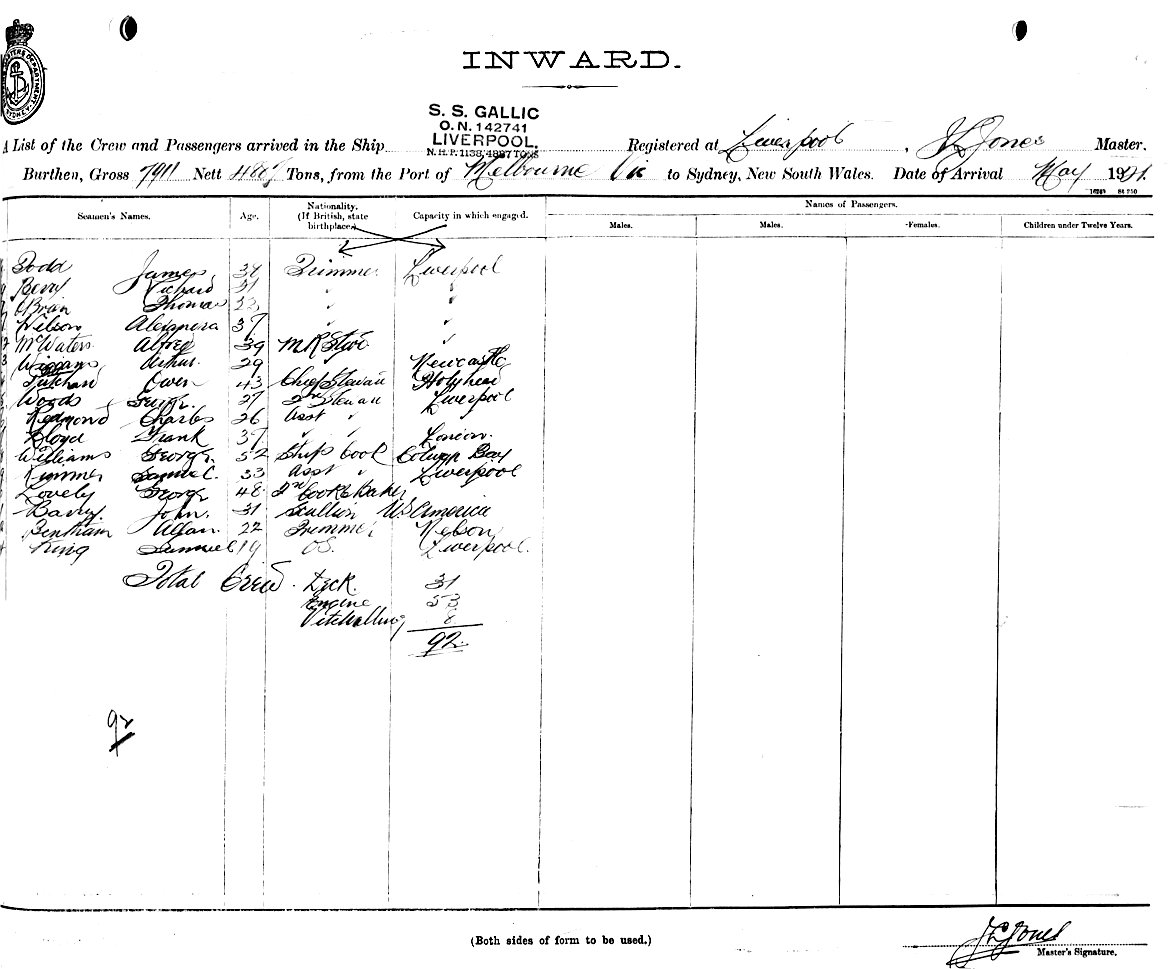 INWARD.
S. S. GALLIC
O.N. 142741
LIVERPOOL.
N.H.P. 1138/4887 TONS
A List of the Crew and Passengers arrived in the Ship Registered at Liverpool, J L Jones Master,
Burthen, Gross 7911 Nett 4887 Tons, from the Port of Melbourne Vic to Sydney, New South Wales. Date of Arrival May 1921.
Names of Passengers.
Seamen's Names. Age. Nationality. (If British, state birthplace.) Capacity in which engaged. Males. Males. Females. Children under Twelve Years.
Todd James 34 Trimmer Liverpool
Berry Richard 31 " "
OBrien Thomas " "
Wilson Alexandra 37 " "
McWaters Alfred 39 "
Arthur 29 Newcastle
Owen 43 Chief Steward Holyhead
Woods 27 2nd Steward Liverpool
Redmond Charles 26 Asst "
Lloyd Frank 37 " " London
Williams George 52 Ships Cook Colwyn Bay
Rimmer Samuel 33 Asst " Liverpool
Lovely George 48 2nd Cook & Baker
Barry John 31 Scullion US America
Bentham Allan 22 Trimmer Nelson
King Samuel 19 OS. Liverpool.
Total Crew. Deck. 31
Engine 53
Victualling 8
92
92
(Both sides of form to be used.)
J L Jones
Master's Signature.